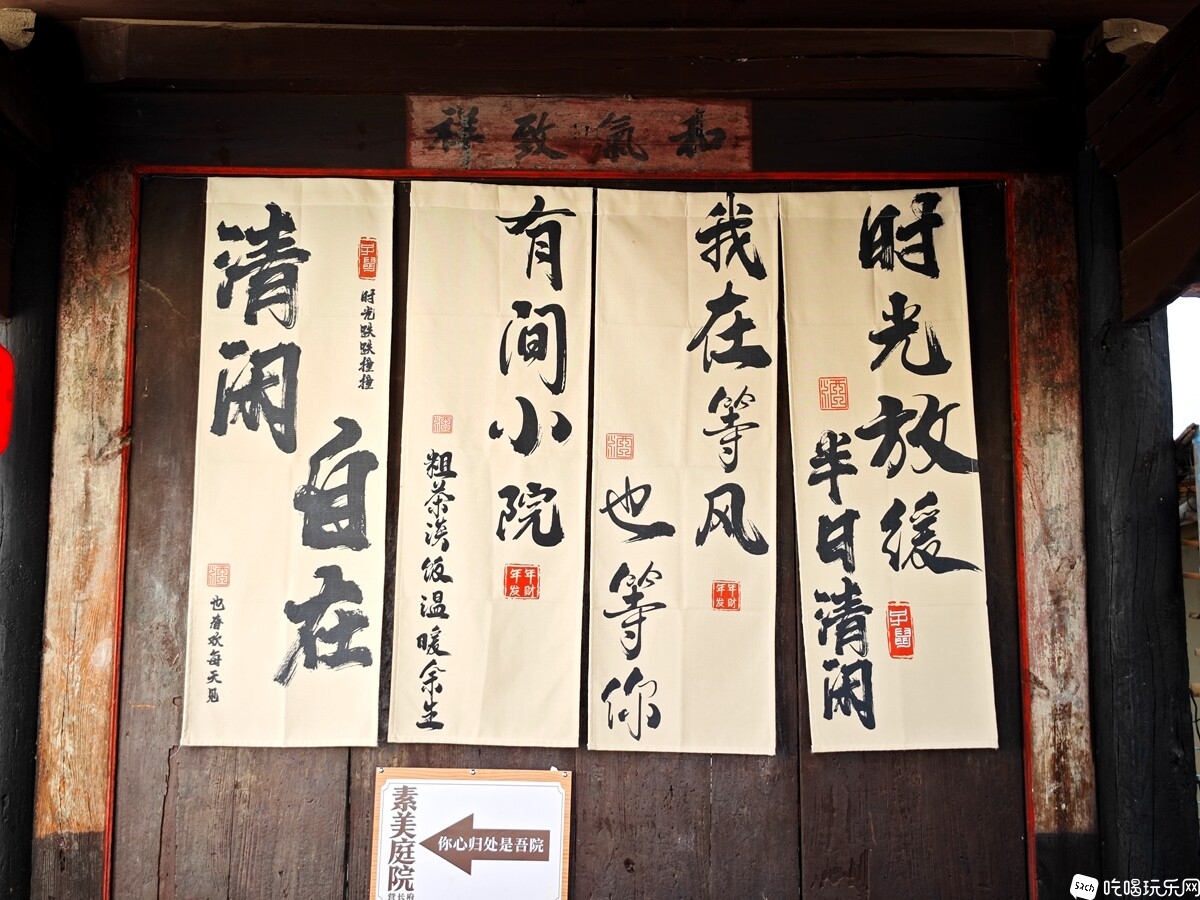 和氣致祥
时光放缓
半日清闲
我在等风
也等你
年年
财发
有间小院
粗茶淡饭温暖余生
年年
财发
时光跌跌撞撞
清闲
自在
也喜欢每天见
素美庭院
你心归处是吾院
5zch
吃喝玩乐网